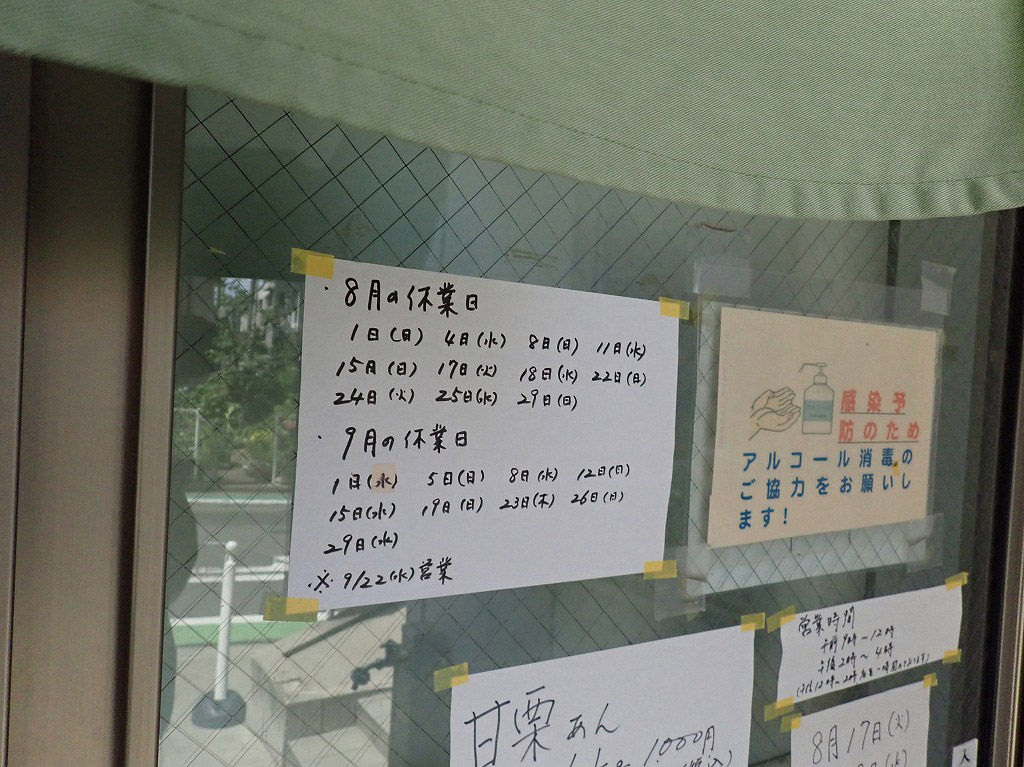 ・8月の休業日
1日(日) 4日(水) 8日(日) 11日(水)
15日(日) 17日(火) 18日(水) 22日(日)
24日(火) 25日(水) 29日(日)
・9月の休業日
1日(水) 5日(日) 8日(水) 12日(日)
15日(水) 19日(日) 23日(木) 26日(日)
29日(水)
※9/22(水)営業
感染予
防のため
アルコール消毒の
ご協力をお願いし
ます!
営業時間
午前9時～12時
午後2時～4時
甘栗あん
1000円
8月17日(火)